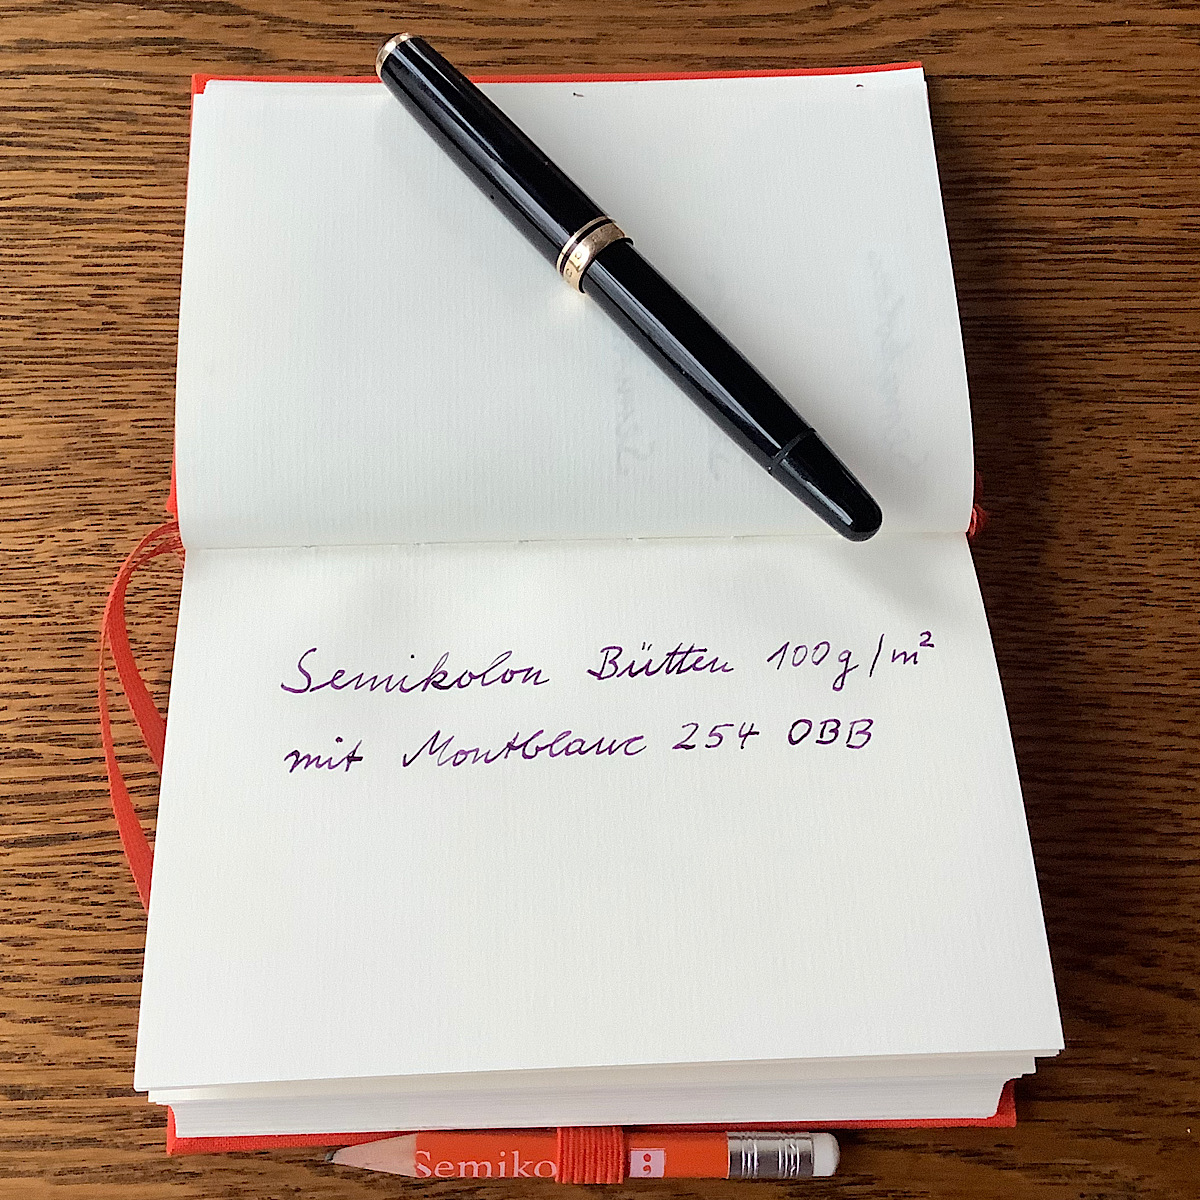 Semikolon Bütten 100g/m²
mit Montblanc 254 OBB
Semiko